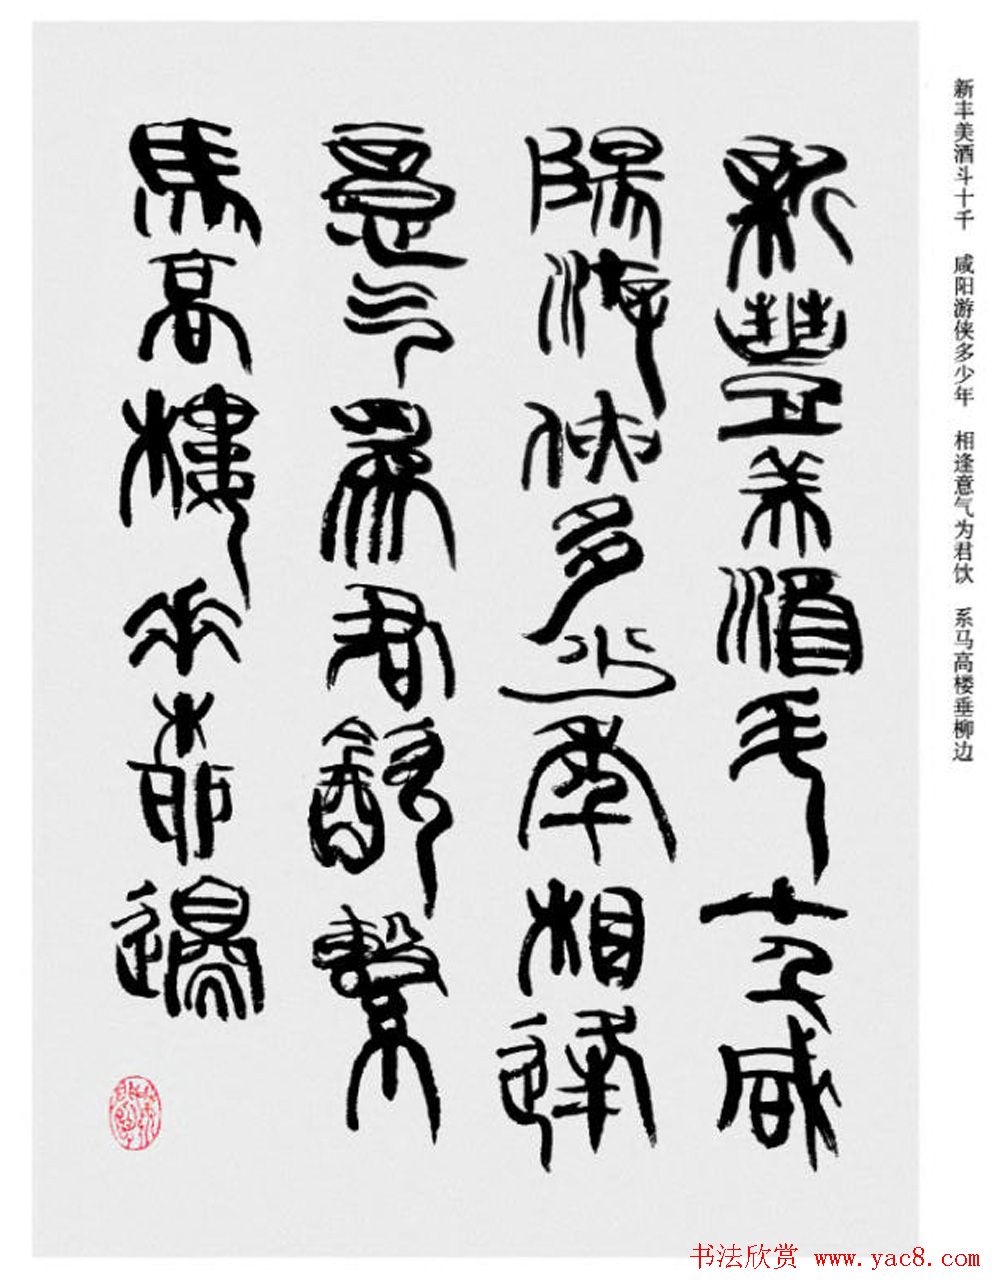 新丰美酒斗十千 咸阳游侠多少年 相逢意气为君饮 系马高楼垂柳边
新豐美酒斗十千咸
陽游俠多少年相逢
意气爲君飲繫
馬高樓垂柳邊
书法欣赏 www.yac8.com